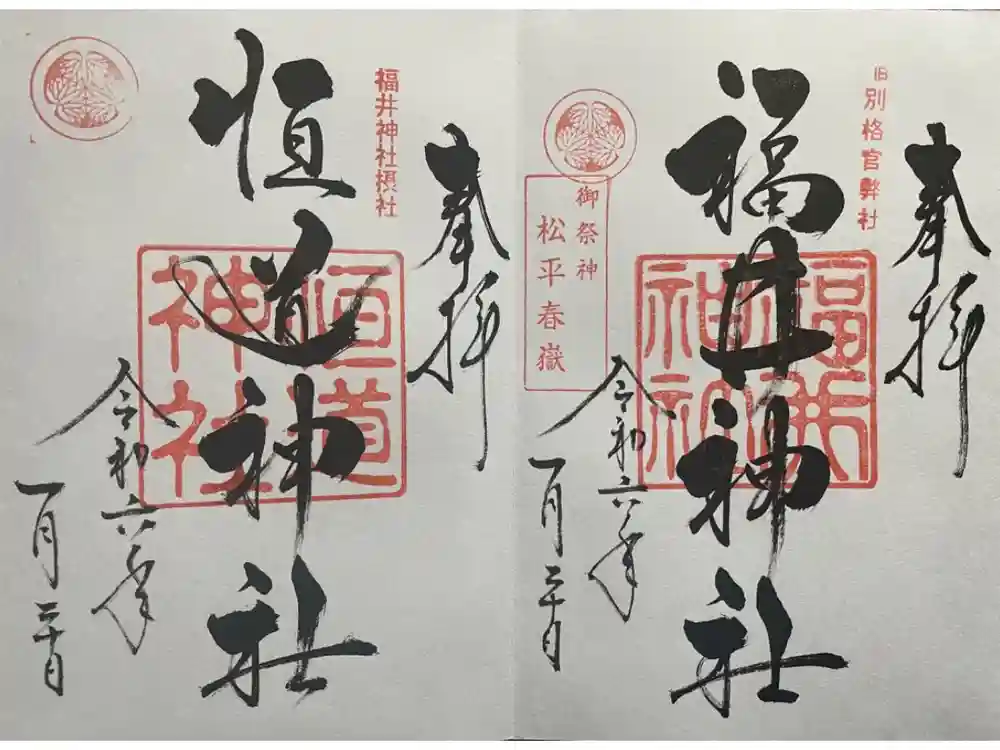 奉拝
旧別格官弊社
福井神社
福井神社
御祭神
松平春嶽
令和六年
一月二十日
奉拝
福井神社摂社
恒道神社
恒道神社
令和六年
一月二十日